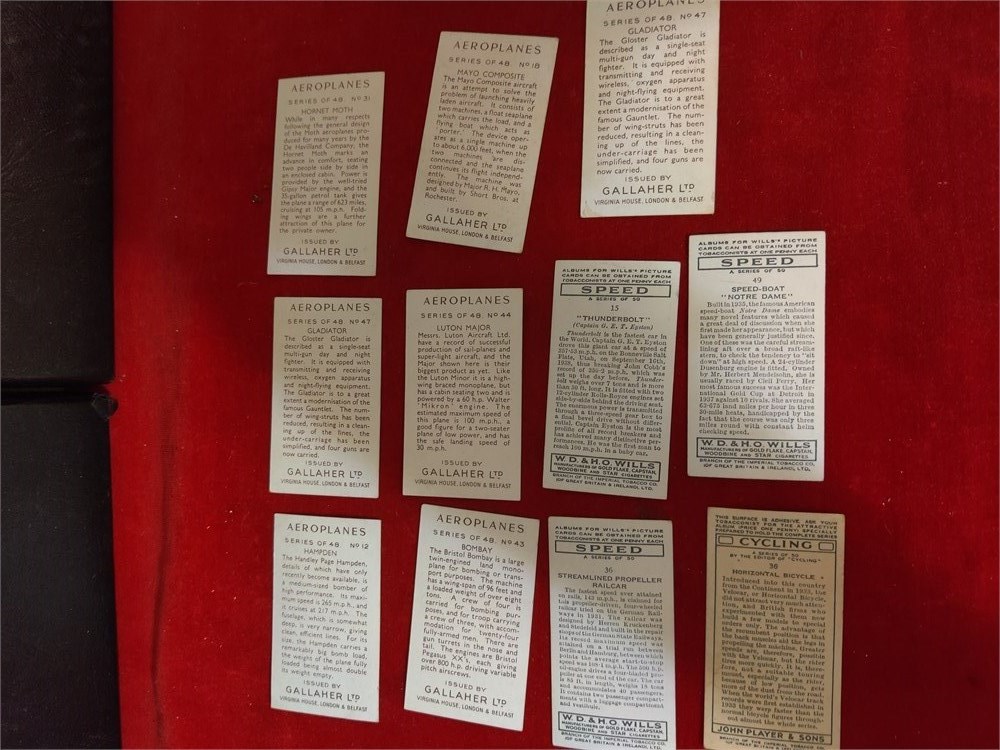 AEROPLANES
SERIES OF 48 Nº 31
HORNET MOTH
While in many respects
following the general design
of the Moth aeroplanes pro-
duced for many years by the
De Havilland Company, the
Hornet Moth marks an
advance in comfort, seating
two people side by side in
an enclosed cabin. Power is
provided by the well-tried
Gipsy Major engine, and the
35-gallon petrol tank gives
the plane a range of 623 miles,
cruising at 105 m.p.h. Fold-
ing wings are a further
attraction of this plane for
the private owner.
ISSUED BY
GALLAHER LTD
VIRGINIA HOUSE, LONDON & BELFAST
AEROPLANES
SERIES OF 48 Nº 18
MAYO COMPOSITE
The Mayo Composite aircraft
is an attempt to solve the
problem of launching heavily
laden aircraft. It consists of
two machines, a float seaplane
which carries the load, and a
flying boat which acts as
porter. The device oper-
ates as a single machine up
to about 6,000 feet, when the
two machines are dis-
connected and the seaplane
continues its flight independ-
ently. The machine was
designed by Major R. H. Mayo,
and built by Short Bros. at
Rochester.
ISSUED BY
GALLAHER LTD
VIRGINIA HOUSE, LONDON & BELFAST
AEROPLANES
SERIES OF 48 Nº 47
GLADIATOR
The Gloster Gladiator is
described as a single-seat
multi-gun day and night
fighter. It is equipped with
transmitting and receiving
wireless, oxygen apparatus
and night-flying equipment.
The Gladiator is to a great
extent a modernisation of the
famous Gauntlet. The num-
ber of wing-struts has been
reduced, resulting in a clean-
ing up of the lines, the
under-carriage has been
simplified, and four guns are
now carried.
ISSUED BY
GALLAHER LTD
VIRGINIA HOUSE, LONDON & BELFAST
AEROPLANES
SERIES OF 48 Nº 47
GLADIATOR
The Gloster Gladiator is
described as a single-seat
multi-gun day and night
fighter. It is equipped with
transmitting and receiving
wireless, oxygen apparatus
and night-flying equipment.
The Gladiator is to a great
extent a modernisation of the
famous Gauntlet. The num-
ber of wing-struts has been
reduced, resulting in a clean-
ing up of the lines, the
under-carriage has been
simplified, and four guns are
now carried.
ISSUED BY
GALLAHER LTD
VIRGINIA HOUSE, LONDON & BELFAST
AEROPLANES
SERIES OF 48 Nº 44
LUTON MAJOR
Messrs. Luton Aircraft Ltd.
have a record of successful
production of sail-planes and
super-light aircraft, and the
Major shown here is their
biggest product as yet. Like
the Luton Minor it is a high-
wing braced monoplane, but
has a cabin seating two and is
powered by a 60 h.p. Walter
"Mikron" engine. The
estimated maximum speed of
this plane is 100 m.p.h., a
good figure for a two-seater
plane of low power, and has
the safe landing speed of
30 m.p.h.
ISSUED BY
GALLAHER LTD
VIRGINIA HOUSE, LONDON & BELFAST
ALBUMS FOR WILLS'S PICTURE
CARDS CAN BE OBTAINED FROM
TOBACCONISTS AT ONE PENNY EACH
SPEED
A SERIES OF 50
15
"THUNDERBOLT"
(Captain G. E. T. Eyston)
Thunderbolt is the fastest car in
the World. Captain G. E. T. Eyston
drove this giant car at a speed of
357·53 m.p.h. on the Bonneville Salt
Flats, Utah, on September 16th,
1938, thus breaking John Cobb's
record of 350·2 m.p.h. which was
set up the day before. Thunder-
bolt weighs over 7 tons and is more
than 30 ft. long. It is fitted with two
12-cylinder Rolls-Royce engines set
side-by-side behind the driving seat.
The enormous power is transmitted
through a three-speed gear box to
a final bevel drive without differ-
ential. Captain Eyston is the most
prolific of all Record breakers and
has achieved many distinctive per-
formances. He was the first man to
reach 100 m.p.h. in a baby car.
W. D. & H. O. WILLS
MANUFACTURERS OF GOLD FLAKE, CAPSTAN,
WOODBINE AND STAR CIGARETTES
BRANCH OF THE IMPERIAL TOBACCO CO.
(OF GREAT BRITAIN & IRELAND), LTD.
ALBUMS FOR WILLS'S PICTURE
CARDS CAN BE OBTAINED FROM
TOBACCONISTS AT ONE PENNY EACH
SPEED
A SERIES OF 50
49
SPEED-BOAT
"NOTRE DAME"
Built in 1935, the famous American
speed-boat Notre Dame embodies
many novel features which caused
a great deal of discussion when she
first made her appearance, but which
have been generally justified since.
One of these was the careful stream-
lining aft over a broad raft-like
stern, to check the tendency to "sit
down" at high speed. A 24-cylinder
Duesenburg engine is fitted. Owned
by Mr. Herbert Mendelsohn, she is
usually raced by Clell Perry. Her
most famous success was the Inter-
national Gold Cup at Detroit in
1937 against 18 rivals. She averaged
63·675 land miles per hour in three
30-mile heats, handicapped by the
fact that the course was only three
miles round with constant helm
checking speed.
W. D. & H. O. WILLS
MANUFACTURERS OF GOLD FLAKE, CAPSTAN,
WOODBINE AND STAR CIGARETTES
BRANCH OF THE IMPERIAL TOBACCO CO.
(OF GREAT BRITAIN & IRELAND), LTD.
AEROPLANES
SERIES OF 48 Nº 12
HAMPDEN
The Handley Page Hampden,
details of which have only
recently become available, is
a medium-sized bomber of
high performance. Its maxi-
mum speed is 265 m.p.h., and
it cruises at 217 m.p.h. The
fuselage, which is somewhat
deep, is very narrow, giving
clean, efficient lines. For its
size, the Hampden carries a
remarkably big bomb load,
the weight of the plane fully
loaded being almost double
its weight empty.
ISSUED BY
GALLAHER LTD
VIRGINIA HOUSE, LONDON & BELFAST
AEROPLANES
SERIES OF 48 Nº 43
BOMBAY
The Bristol Bombay is a large
twin-engined land mono-
plane for bombing or trans-
port purposes. The machine
has a wing-span of 96 feet and
a loaded weight of over eight
tons. A crew of four is
carried for bombing pur-
poses, and for troop carrying
a crew of three, with accom-
modation for twenty-four
fully-armed men. There are
gun turrets in the nose and
tail. The engines are Bristol
Pegasus XX's, each giving
over 800 h.p. driving variable
pitch airscrews.
ISSUED BY
GALLAHER LTD
VIRGINIA HOUSE, LONDON & BELFAST
ALBUMS FOR WILLS'S PICTURE
CARDS CAN BE OBTAINED FROM
TOBACCONISTS AT ONE PENNY EACH
SPEED
A SERIES OF 50
36
STREAMLINED PROPELLER
RAILCAR
The fastest speed ever attained
on rails, 143 m.p.h., is claimed for
this propeller-driven, four-wheeled
railcar tried on the German Rail-
ways in 1931. The railcar was
designed by Herren Kruckenberg
and
W. D. & H. O. WILLS
MANUFACTURERS OF GOLD FLAKE, CAPSTAN,
WOODBINE AND STAR CIGARETTES
BRANCH OF THE IMPERIAL TOBACCO CO.
(OF GREAT BRITAIN & IRELAND), LTD.
THIS SURFACE IS ADHESIVE. ASK YOUR
TOBACCONIST FOR THE ATTRACTIVE
ALBUM (PRICE ONE PENNY) SPECIALLY
PREPARED TO HOLD THE COMPLETE SERIES
CYCLING
A SERIES OF 50
BY THE EDITOR OF "CYCLING"
HORIZONTAL BICYCLE
Introduced into this country
from the Continent in 1933, the
Velocar, or Horizontal Bicycle,
did not attract very much atten-
tion, and British firms who
experimented with them now
build a few models for special
orders only.
JOHN PLAYER & SONS
BRANCH OF THE IMPERIAL TOBACCO CO.